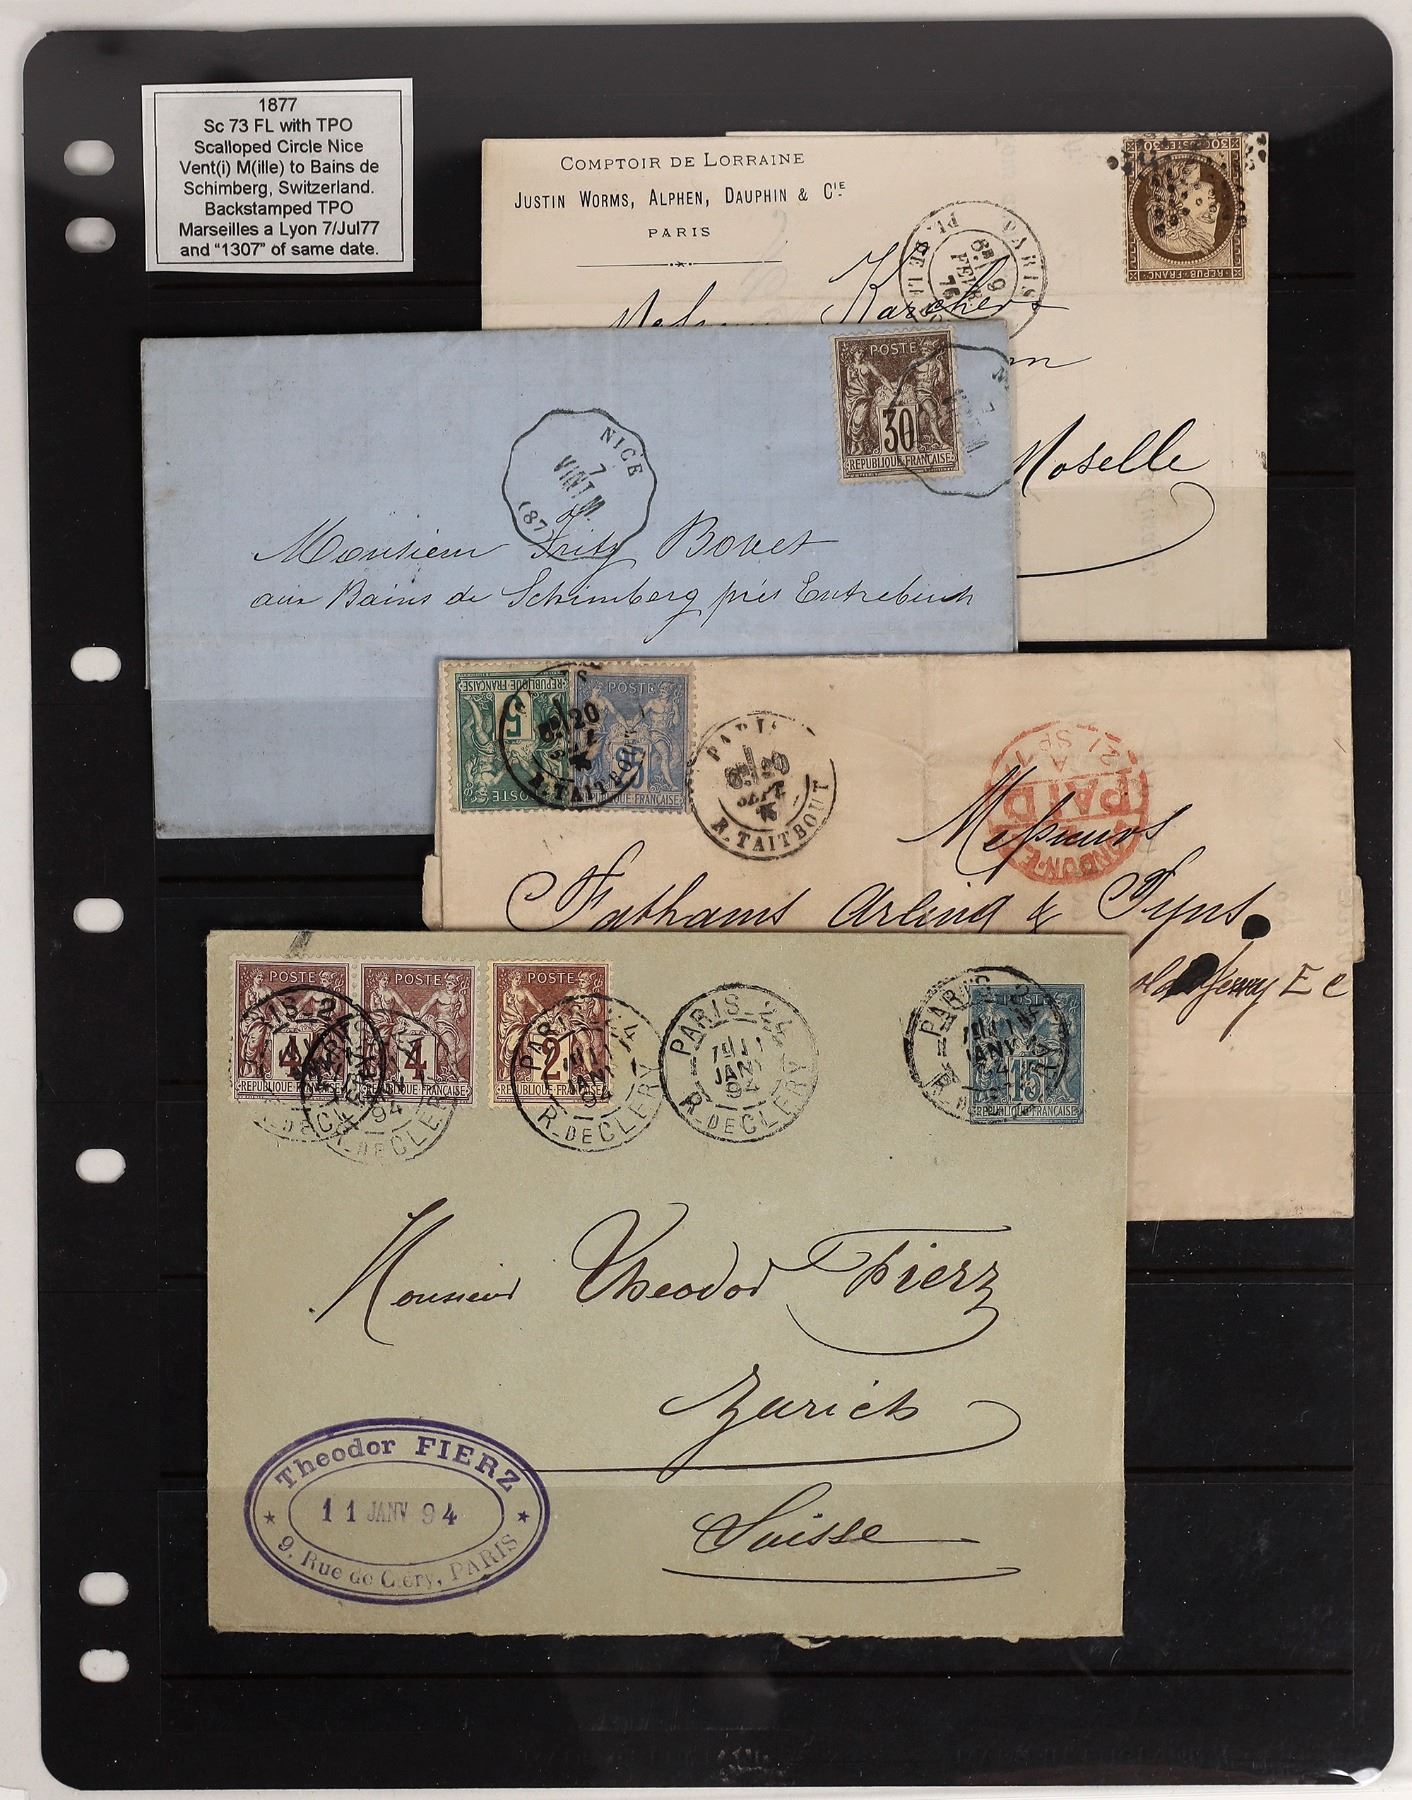 1877
Sc 73 FL with TPO
Scalloped Circle Nice
Vent(i) M(ille) to Bains de
Schimberg, Switzerland.
Backstamped TPO
Marseilles a Lyon 7/Jul77
and "1307" of same date.
COMPTOIR DE LORRAINE
JUSTIN WORMS, ALPHEN, DAUPHIN & CIE
PARIS
30 POSTES 30
REPUB FRANC
PARIS
PL DE LA
9
FEVR
76
Karcher
Moselle
POSTE
30
REPUBLIQUE FRANÇAISE
NICE
7
VINT M.
(87
NI
7
Monsieur Fritz Bovet
aux Bains de Schimberg près Entrebuch
POSTE
5
REPUBLIQUE FRANÇAISE
POSTE
REPUBLIQUE FRANÇAISE
20
R. TAITBOUT
PARIS
20
SEPT
R. TAITBOUT
LONDON-E
PAID
21 SP
Messieurs
Fathams Arling & Tyns
E C
POSTE
4
REPUBLIQUE FRANÇAISE
POSTE
4
REPUBLIQUE FRANÇAISE
POSTE
2
REPUBLIQUE FRANÇAISE
94
R. DE CLERY
PARIS 24
JANV
94
R. DE CLERY
PARIS_24
JANV
94
R. DE CLERY
PARIS
JANV
94
R. DE
POSTE
15
REPUBLIQUE FRANÇAISE
Monsieur Theodor Fierz
Zurich
Suisse
Theodor FIERZ
11 JANV 94
9, Rue de Cléry, PARIS